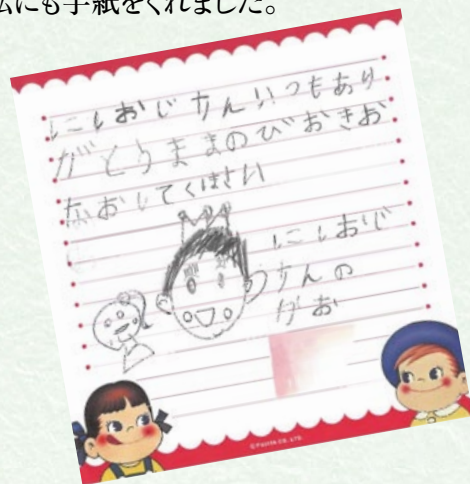 仏にも手紙をくれました。
にしおじちんいつもあり
がとうままのびおきお
なおしてくはさい
にしおじ
ちんの
がお
©FUJIYA CO., LTD.